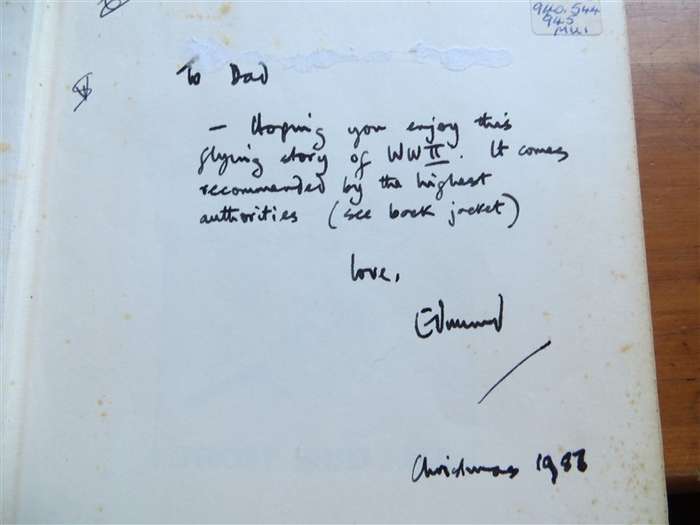 940.544
945
MUI.
To Dad
– Hoping you enjoy this
flying story of WWII. It comes
recommended by the highest
authorities (see back jacket)
love,
Edmund
Christmas 1988